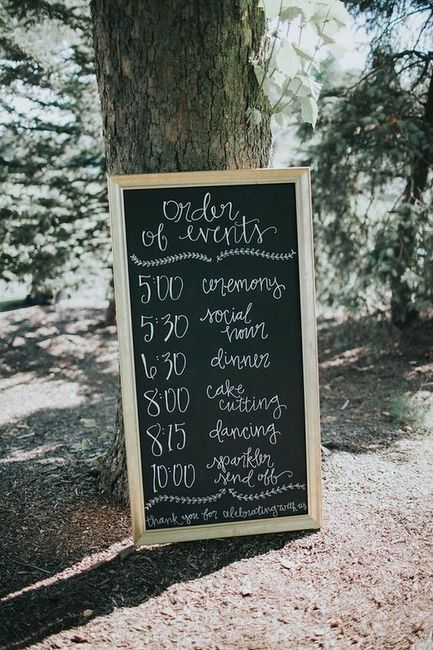 order
of events
5:00 ceremony
5:30 social
hour
6:30 dinner
8:00 cake
cutting
8:15 dancing
10:00 sparkler
send off
thank you for celebrating with us